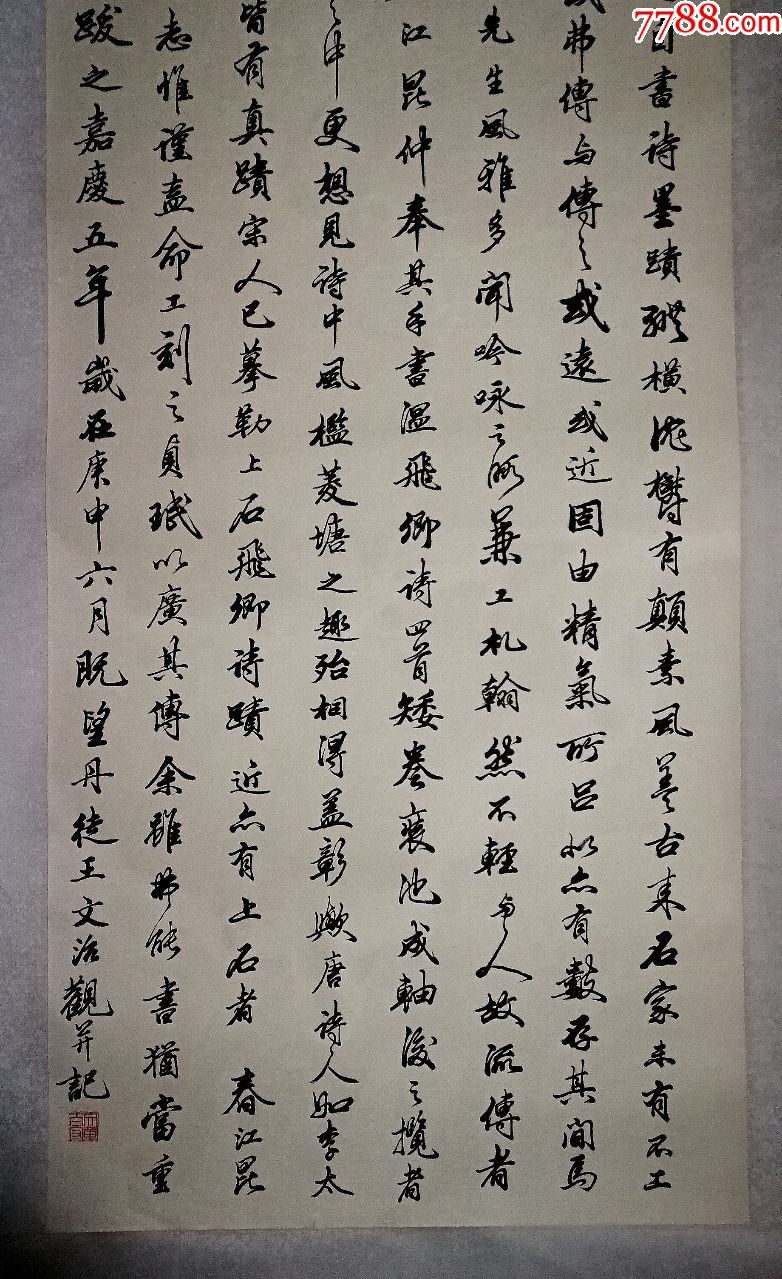 7788.com
自書詩墨蹟縱橫沈鬱有顛素風美古來名家未有不工
弗傳与傳之或遠或近固由精氣所呂然亦有數存其间焉
先生風雅多聞吟咏之暇兼工札翰然不輕与人故流傳者
江昆仲奉其手書溫飛卿詩四首矮卷裝池成軸後之攬者
之中更想見詩中風檻菱塘之趣殆相得盖彰歟唐詩人如李太
皆有真蹟宋人已摹勒上石飛卿詩蹟近亦有上石者 春江昆
志惟謹盍命工刻之貞珉以廣其傳余雖弗能書猶當重
跋之嘉慶五年歲在庚申六月既望丹徒王文治觀并記